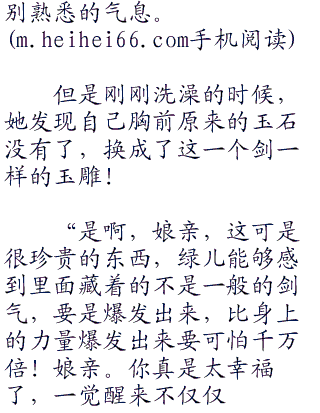 别熟悉的气息。
(m.heihei66.com手机阅读)
但是刚刚洗澡的时候，
她发现自己胸前原来的玉石
没有了，换成了这一个剑一
样的玉雕！
“是啊，娘亲，这可是
很珍贵的东西，绿儿能够感
到里面藏着的不是一般的剑
气，要是爆发出来，比身上
的力量爆发出来要可怕千万
倍！娘亲。你真是太幸福
了，一觉醒来不仅仅